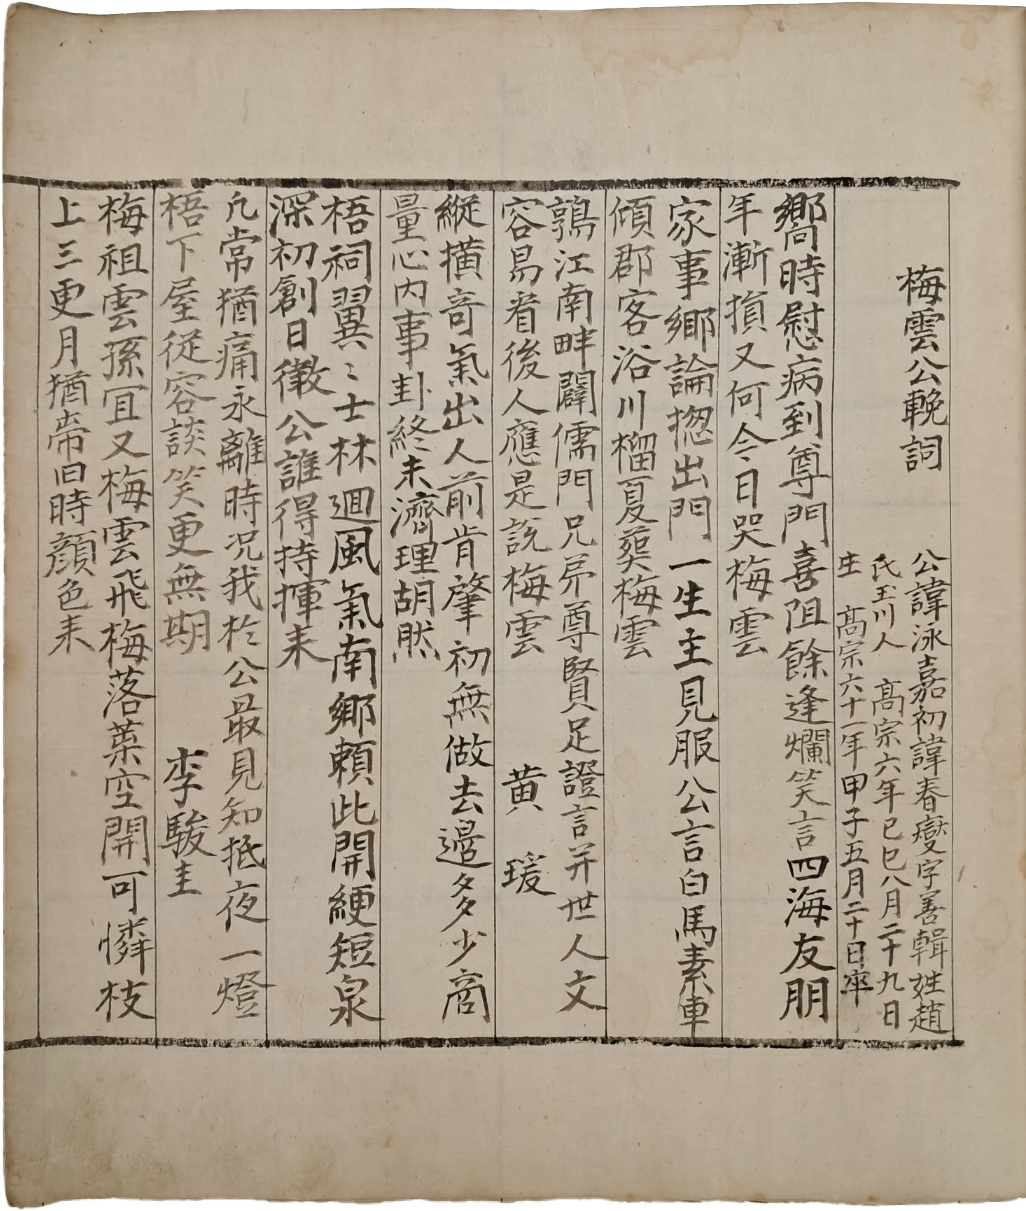 梅雲公輓詞
公諱泳嘉初諱春燮字善輯姓趙
氏玉川人 高宗六年己巳八月二十九日
生 高宗六十一年甲子五月二十日卒
嚮時慰病到尊門喜阻餘逢爛笑言四海友朋
年漸損又何今日哭梅雲
家事鄉論揔出門一生主見服公言白馬素車
傾郡客浴川榴夏葬梅雲
鶉江南畔闢儒門兄弟尊賢足證言并世人文
容易看後人應是說梅雲 黄瑗
縱橫奇氣出人前肯肇初無做去邊多少商
量心內事卦終未濟理胡然
梧祠翼〻士林迴風氣南鄉賴此開綆短泉
深初創日徵公誰得持揮来
凡常猶痛永離時况我於公最見知抵夜一燈
梧下屋從容談笑更無期 李駿圭
梅祖雲孫冝又梅雲飛梅落葉空開可憐枝
上三更月猶帶旧時顏色来